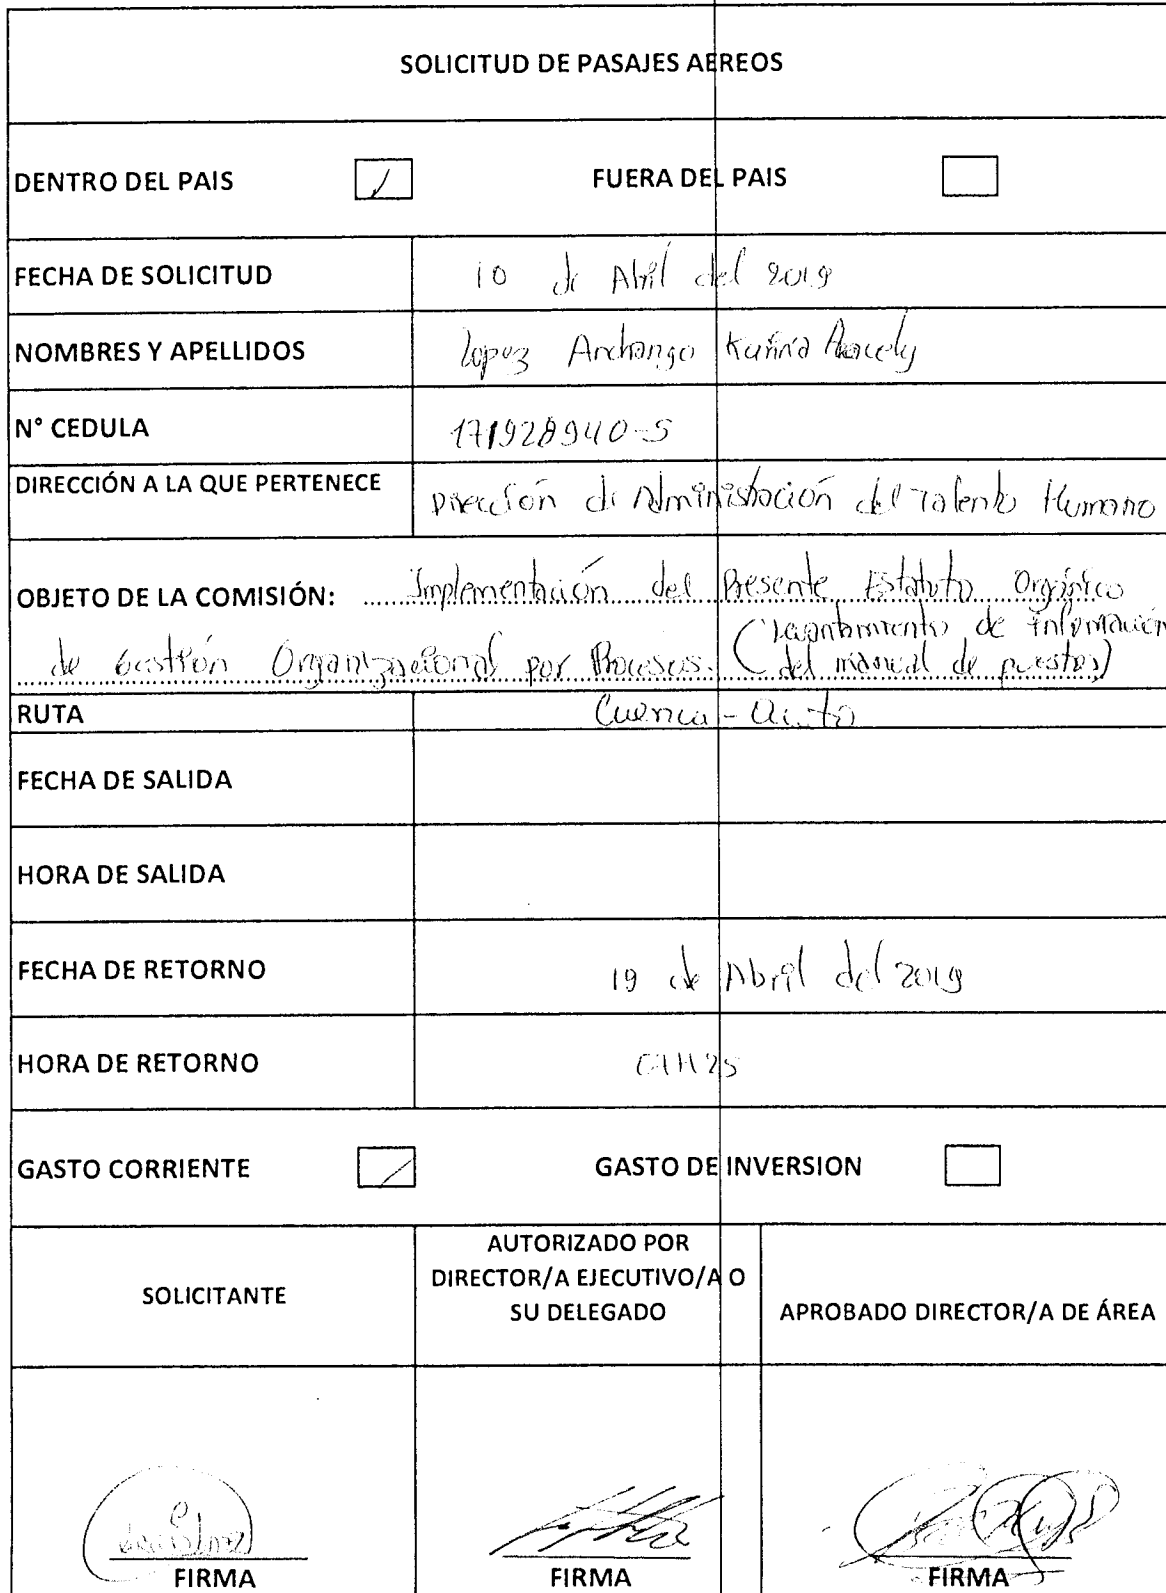 SOLICITUD DE PASAJES AEREOS
DENTRO DEL PAIS FUERA DEL PAIS
FECHA DE SOLICITUD 10 de Abril del 2019
NOMBRES Y APELLIDOS Lopez Anchango Karina Aracely
N° CEDULA 171928940-5
DIRECCIÓN A LA QUE PERTENECE Dirección de Administración del Talento Humano
OBJETO DE LA COMISIÓN: Implementación del Presente Estatuto Orgánico
de Gestión Organizacional por Procesos. (levantamiento de información
del manual de puestos)
RUTA Cuenca - Quito
FECHA DE SALIDA
HORA DE SALIDA
FECHA DE RETORNO 19 de Abril del 2019
HORA DE RETORNO
GASTO CORRIENTE GASTO DE INVERSION
SOLICITANTE
AUTORIZADO POR
DIRECTOR/A EJECUTIVO/A O
SU DELEGADO
APROBADO DIRECTOR/A DE ÁREA
FIRMA FIRMA FIRMA